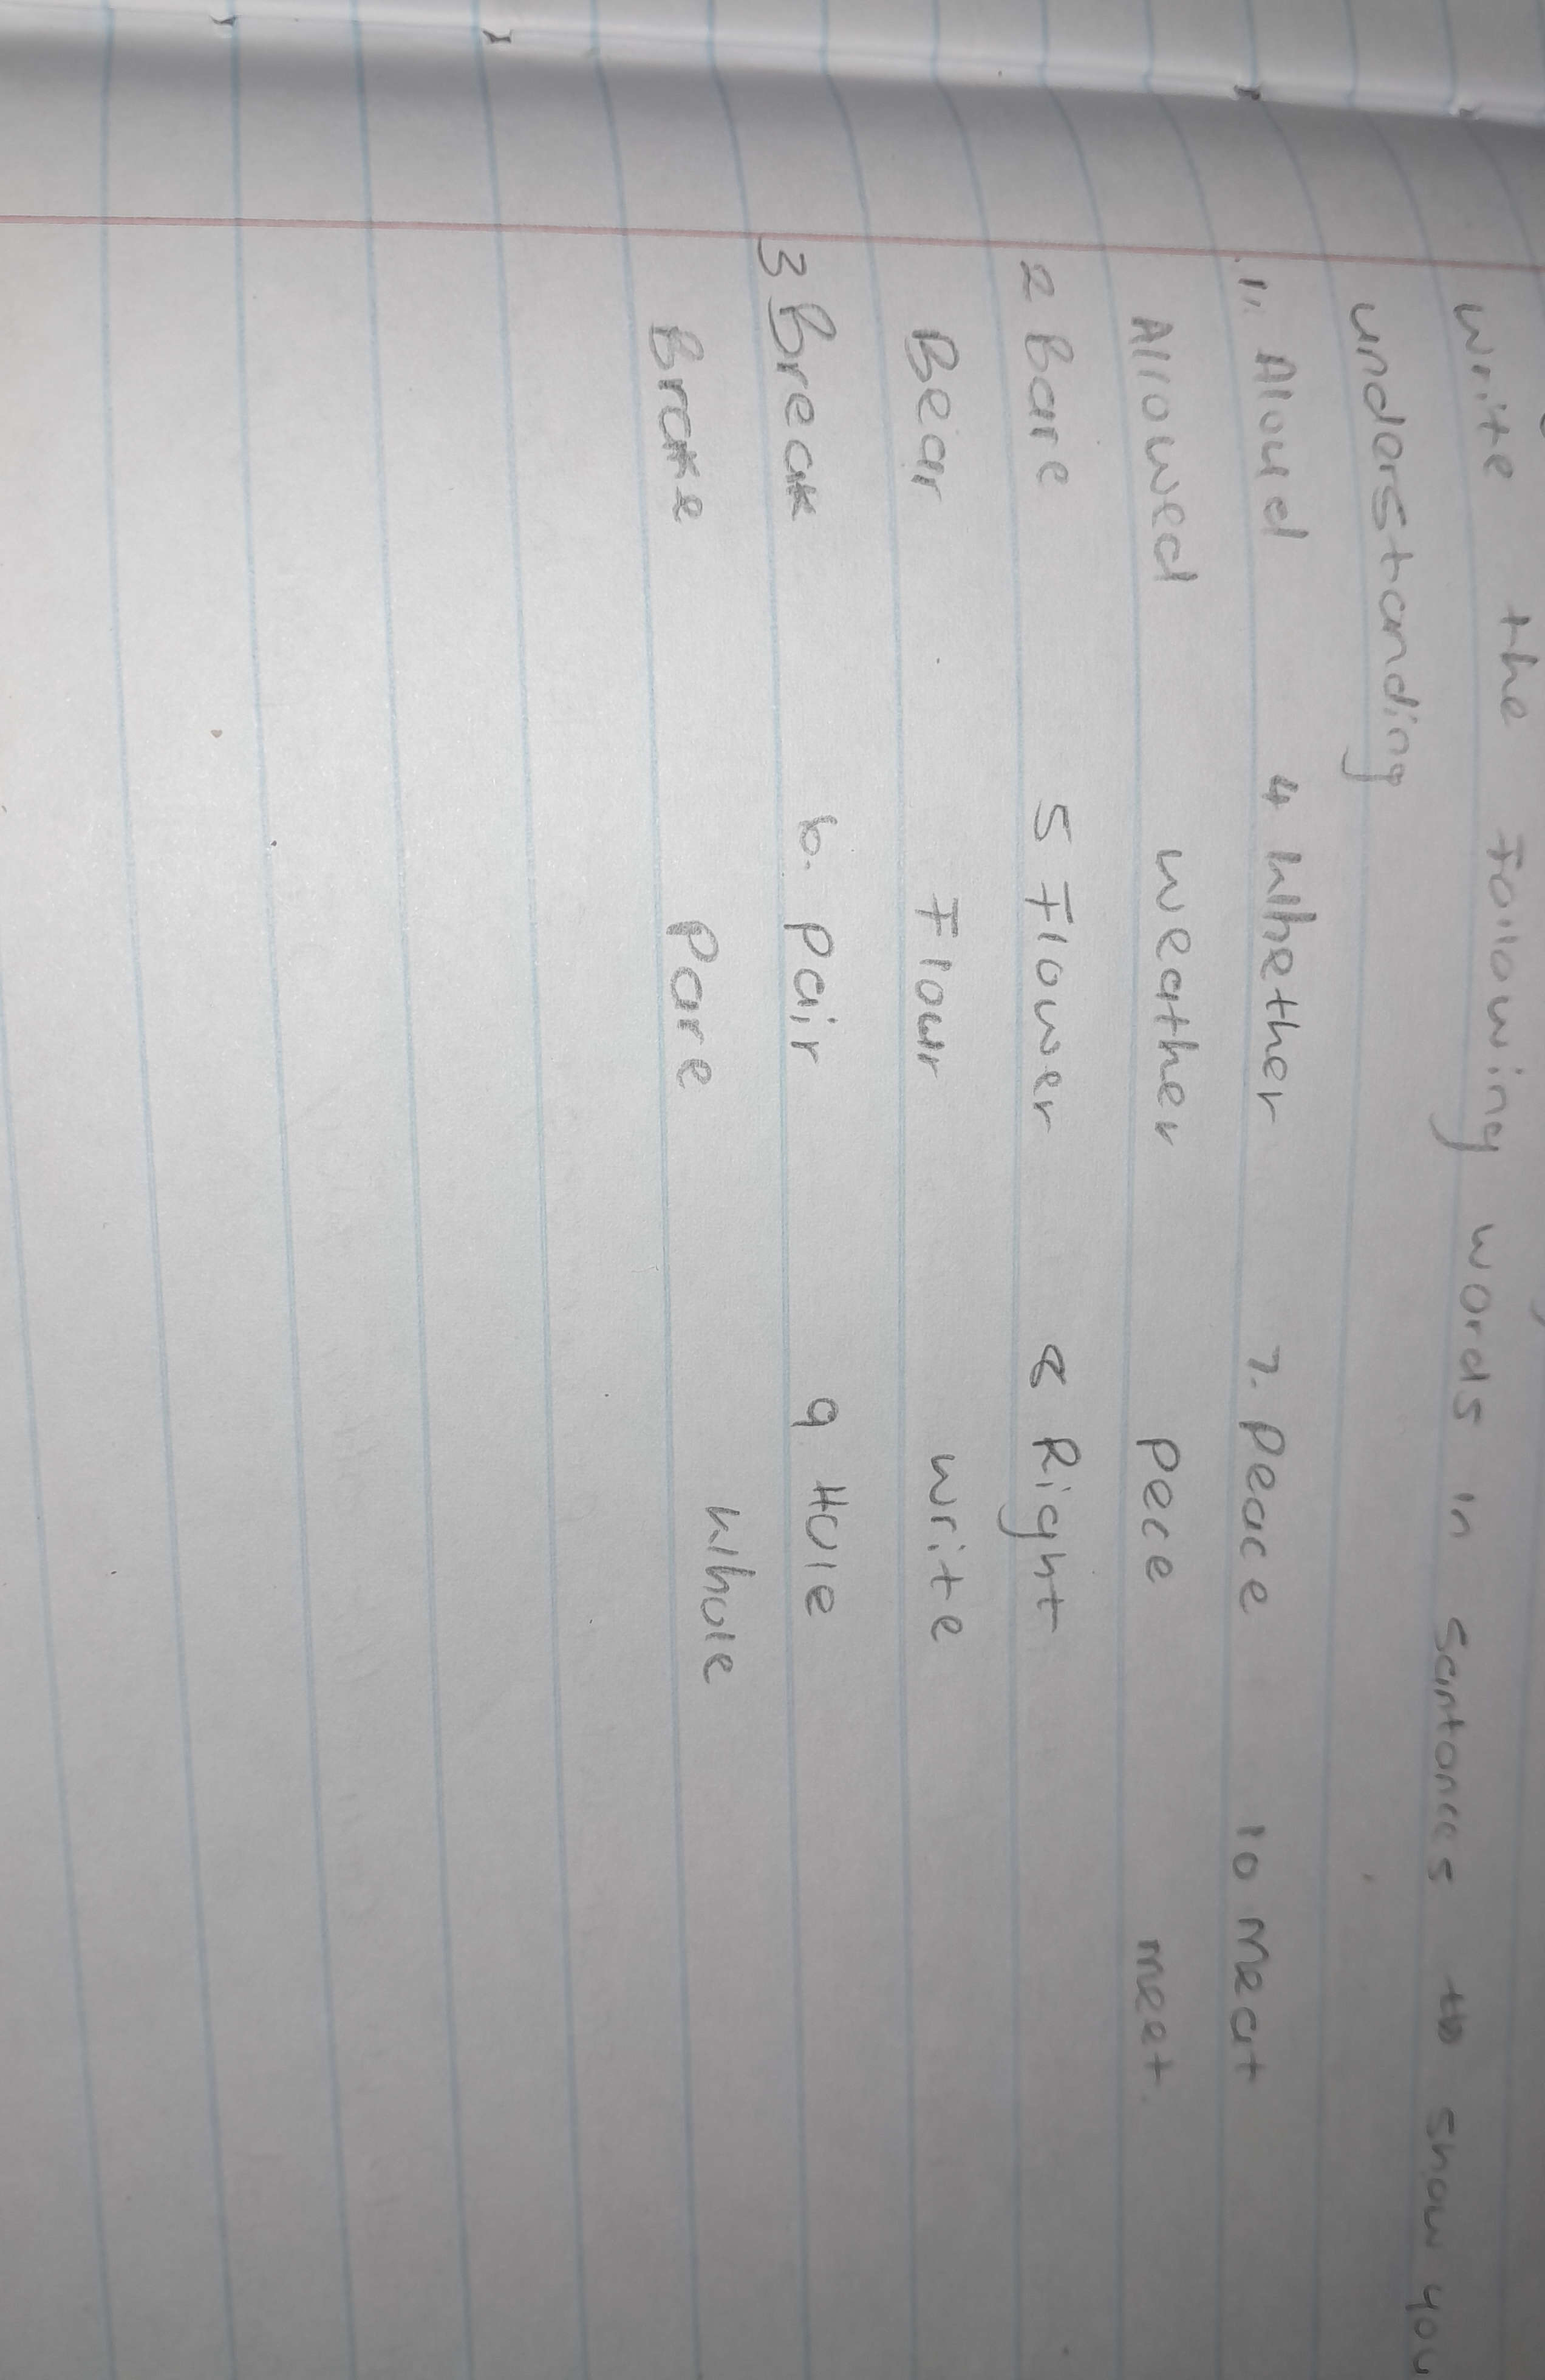 write the Following words in Sentences to show you
understanding
1. Aloud 4 Whether 7. Peace 10 Meat
Allowed weather Pece meet.
2 Bare 5 Flower 8 Right
Bear Flour write
3 Break 6. Pair 9 Hole
Brake Pare Whole